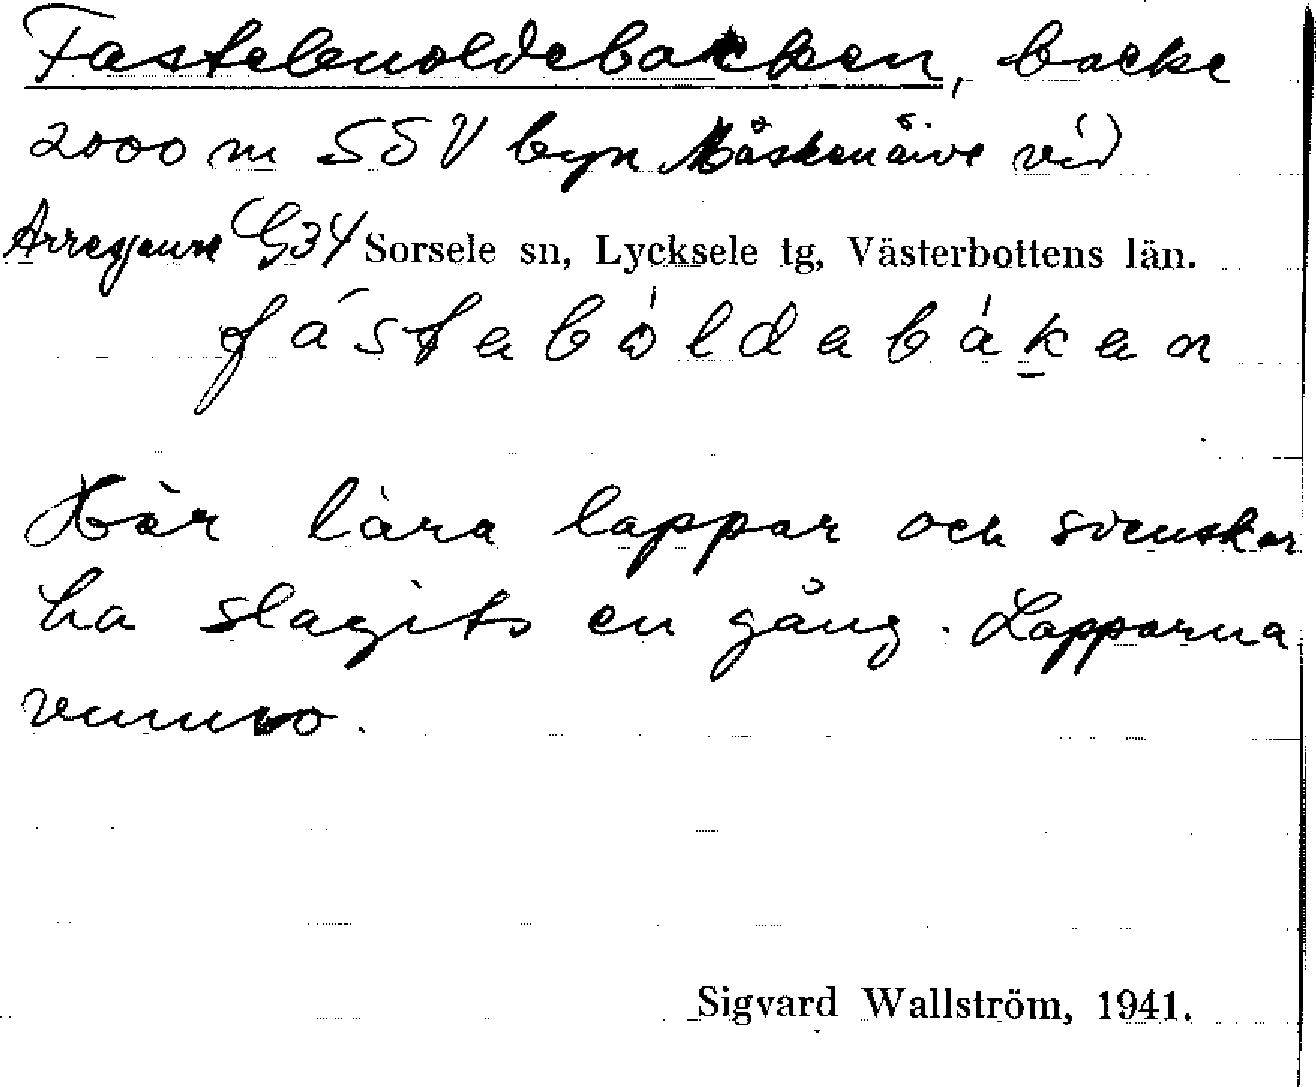 Fastebuoldebacken, backe
2000 m SSV byn Måskenäive vid
Arresjaure G34 Sorsele sn, Lycksele tg, Västerbottens län.
fástabòldabákan
Här lära lappar och svenskar
ha slagits en gång. Lapparna
vunno.
Sigvard Wallström, 1941.